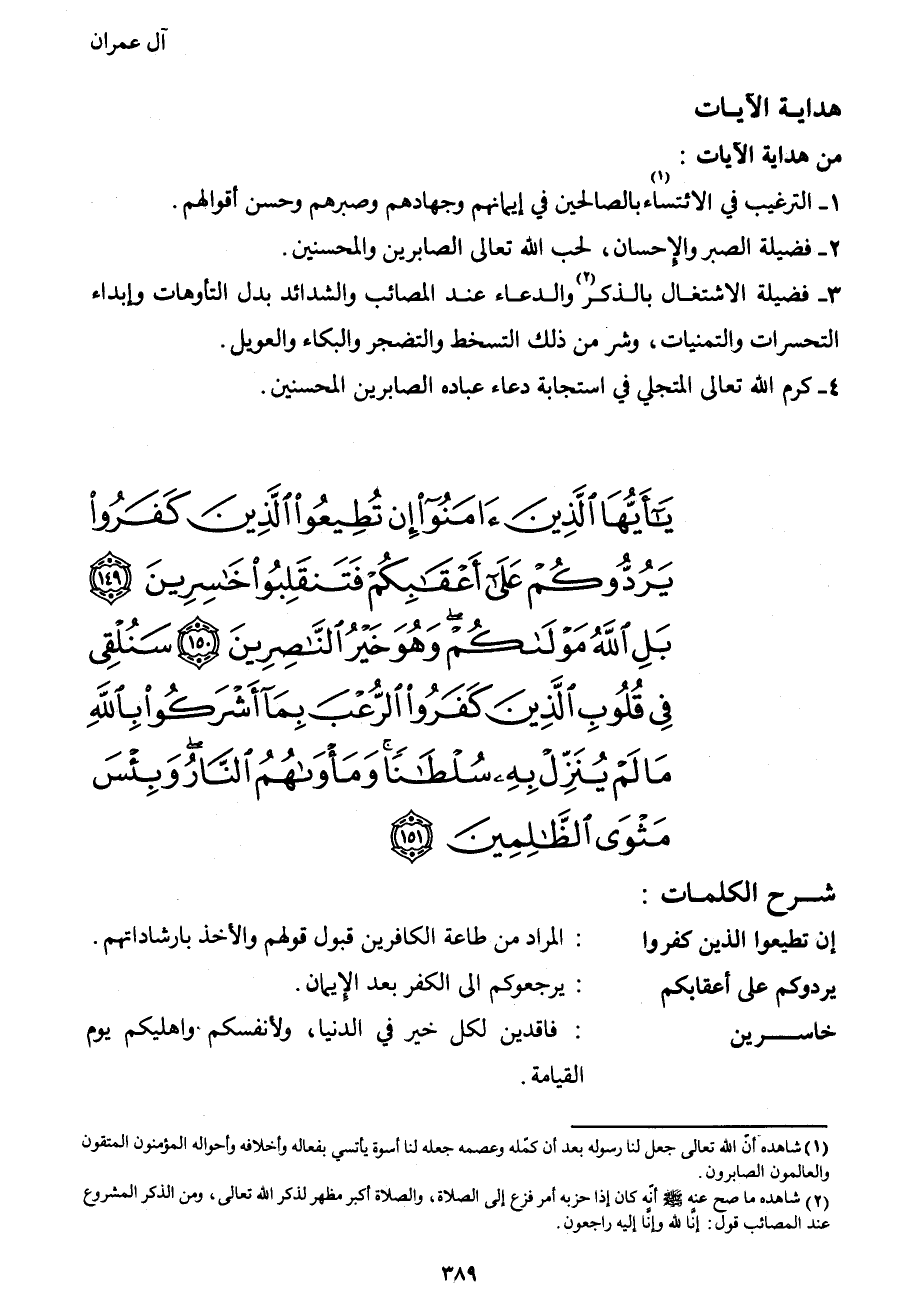 آل عمران
هدايـة الآيـات
من هداية الآيات :
١ـ الترغيب في الائتساء(١) بالصالحين في إيمانهم وجهادهم وصبرهم وحسن أقوالهم .
٢ـ فضيلة الصبر والإحسان، لحب الله تعالى الصابرين والمحسنين .
٣ـ فضيلة الاشتغـال بالـذكـر(٢) والـدعـاء عنـد المصائب والشدائد بدل التأوهات وإبداء
التحسرات والتمنيات، وشر من ذلك التسخط والتضجر والبكاء والعويل .
٤ـ كرم الله تعالى المتجلي في استجابة دعاء عباده الصابرين المحسنين .
يَـٰٓأَيُّهَا ٱلَّذِينَ ءَامَنُوٓا۟ إِن تُطِيعُوا۟ ٱلَّذِينَ كَفَرُوا۟
يَرُدُّوكُمْ عَلَىٰٓ أَعْقَـٰبِكُمْ فَتَنقَلِبُوا۟ خَـٰسِرِينَ ١٤٩
بَلِ ٱللَّهُ مَوْلَىٰكُمْ ۖ وَهُوَ خَيْرُ ٱلنَّـٰصِرِينَ ١٥٠ سَنُلْقِى
فِى قُلُوبِ ٱلَّذِينَ كَفَرُوا۟ ٱلرُّعْبَ بِمَآ أَشْرَكُوا۟ بِٱللَّهِ
مَا لَمْ يُنَزِّلْ بِهِۦ سُلْطَـٰنًا ۚ وَمَأْوَىٰهُمُ ٱلنَّارُ ۖ وَبِئْسَ
مَثْوَى ٱلظَّـٰلِمِينَ ١٥١
شـــرح الكلمـات :
إن تطيعوا الذين كفروا : المراد من طاعة الكافرين قبول قولهم والأخذ بارشاداتهم .
يردوكم على أعقابكم : يرجعوكم الى الكفر بعد الإيمان .
خاســـــرين : فاقدين لكل خير في الدنيا، ولأنفسكم واهليكم يوم
القيامة .
(١) شاهده أنّ الله تعالى جعل لنا رسوله بعد أن كمّله وعصمه جعله لنا أسوة يأتسي بفعاله وأخلاقه وأحواله المؤمنون المتقون
والعالمون الصابرون .
(٢) شاهده ما صح عنه ﷺ أنّه كان إذا حزبه أمر فزع إلى الصلاة، والصلاة أكبر مظهر لذكر الله تعالى، ومن الذكر المشروع
عند المصائب قول: إنّا لله وإنّا إليه راجعون.
٣٨٩